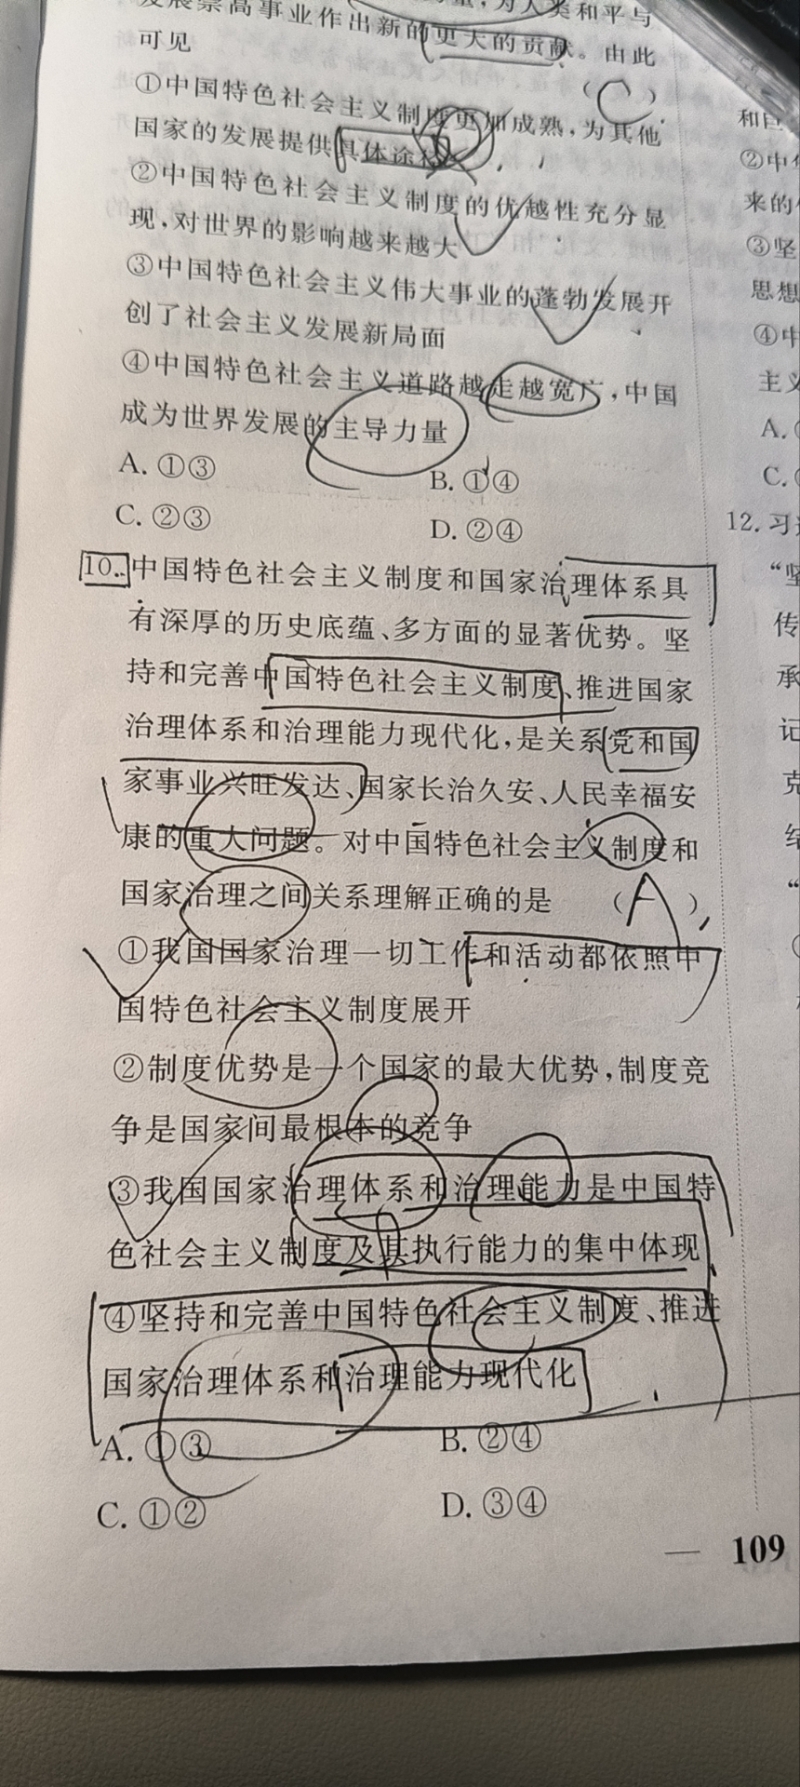 发展崇高事业作出新的更大的贡献。由此
可见 ( C )
①中国特色社会主义制度更加成熟,为其他
国家的发展提供具体途径
②中国特色社会主义制度的优越性充分显
现,对世界的影响越来越大
③中国特色社会主义伟大事业的蓬勃发展开
创了社会主义发展新局面
④中国特色社会主义道路越走越宽广,中国
成为世界发展的主导力量
A. ①③ B. ①④
C. ②③ D. ②④
10. 中国特色社会主义制度和国家治理体系具
有深厚的历史底蕴、多方面的显著优势。坚
持和完善中国特色社会主义制度、推进国家
治理体系和治理能力现代化,是关系党和国
家事业兴旺发达、国家长治久安、人民幸福安
康的重大问题。对中国特色社会主义制度和
国家治理之间关系理解正确的是 ( A )
①我国国家治理一切工作和活动都依照中
国特色社会主义制度展开
②制度优势是一个国家的最大优势,制度竞
争是国家间最根本的竞争
③我国国家治理体系和治理能力是中国特
色社会主义制度及其执行能力的集中体现
④坚持和完善中国特色社会主义制度、推进
国家治理体系和治理能力现代化
A. ①③ B. ②④
C. ①② D. ③④
— 109
②中
来的
③坚
思想
④中
主义
A.
C.
12. 习
“坚
传
承
记
克
结